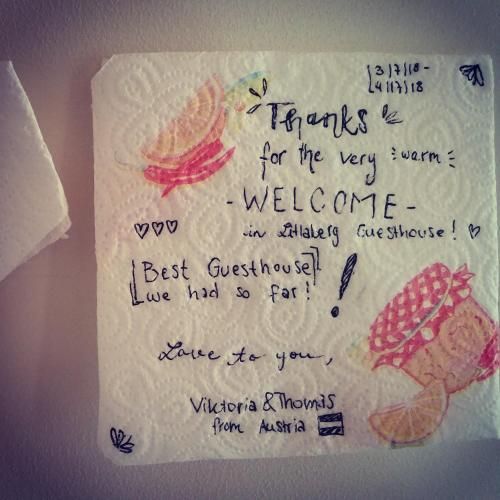 3/7/18 -
4/7/18
Thanks
for the very warm
- WELCOME -
in Litlaberg Guesthouse!
Best Guesthouse
we had so far!
Love to you,
Viktoria & Thomas
from Austria